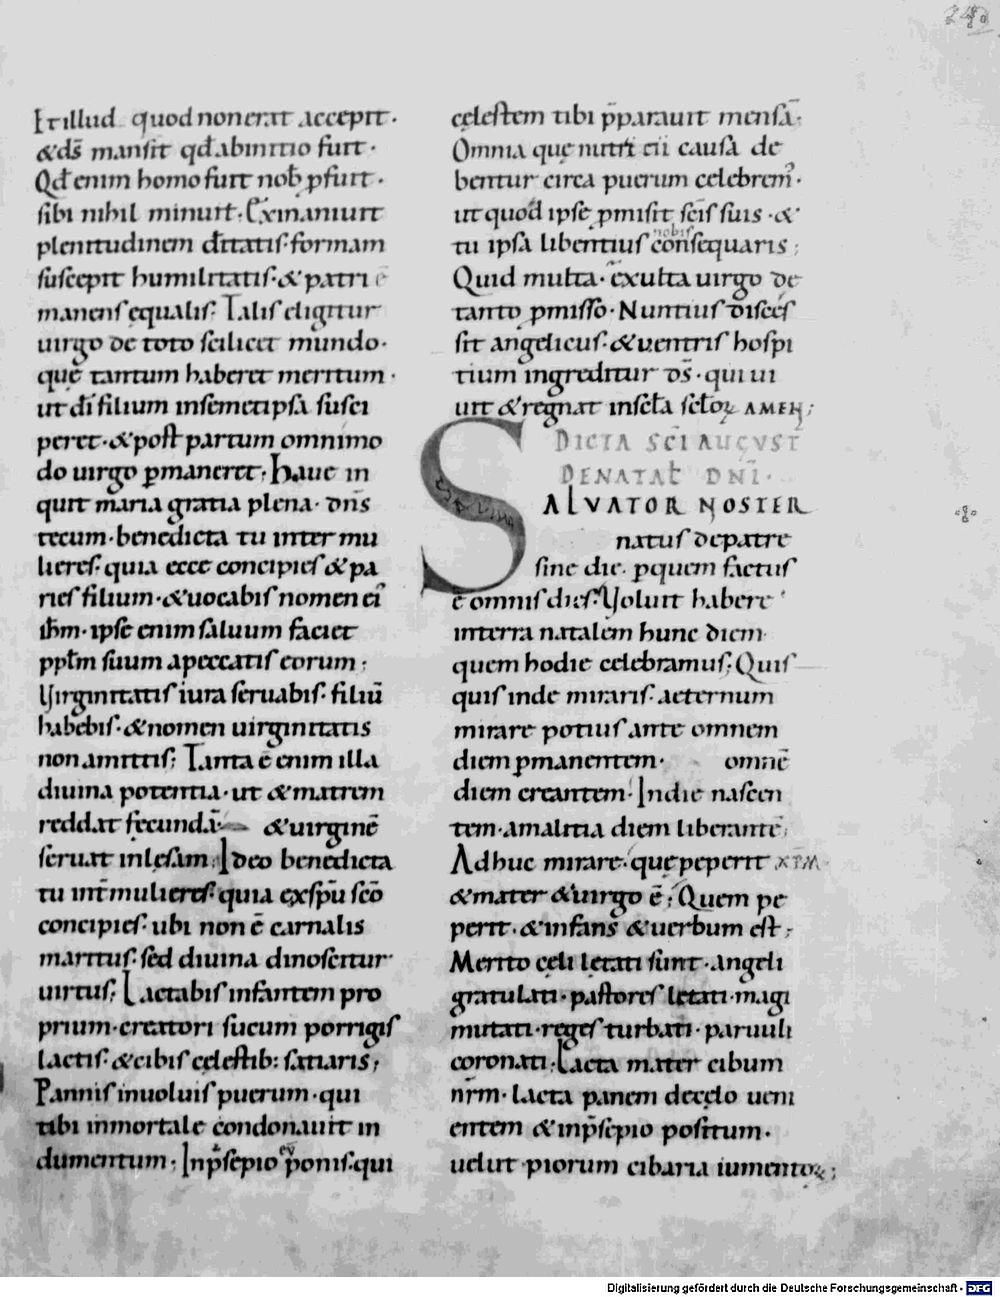 240
Et illud quod non erat accepit·
&ds̄ mansit qđ ab initio fuit·
Qđ enim homo fuit nob̄ ꝓfuit·
sibi nihil minuit· Exinaniuit
plenitudinem đitatis· formam
suscepit humilitatis· & patri ē
manens ęqualis; Talis eligitur
uirgo de toto scilicet mundo·
quę tantum haberet meritum·
ut di filium in semetipsa susci
peret· & post partum omnimo
do uirgo ꝑmaneret· haue in
quit maria gratia plena· dn̄s
tecum· benedicta tu inter mu
lieres· quia ecce concipies & pa
ries filium· & uocabis nomen ei'
ih̄m· ipse enim saluum faciet
ppl̄m suum a peccatis eorum;
Virginitatis iura seruabis· filiū
habebis· & nomen uirginitatis
non amittis; Tanta ē enim illa
diuina potentia· ut & matrem
reddat fęcundā· & uirginē
seruat inlęsam; Ideo benedicta
tu int̄ mulieres· quia ex sp̄u sc̄o
concipies· ubi non ē carnalis
maritus· sed diuina dinoscitur
uirtus; Lactabis infantem pro
prium· creatori sucum porrigis
lactis· & cibis cęlestib: satiaris;
Pannis inuoluis puerum· qui
tibi inmortale condonauit in
dumentum· In p̄sepio eū ponis· qui
cęlestem tibi p̄parauit mensā·
Omnia quę nutri eii causa de
bentur circa puerum celebrem'·
ut quod ipse ꝓmisit sc̄is suis· &
tu ipsa libentius nobis consequaris;
Quid multa· exulta uirgo de
tanto ꝓmisso· Nuntius disces
sit angelicus· & uentris hospi
tium ingreditur ds̄· qui ui
uit & regnat in sc̄ła sc̄łoꝝ AMEN;
DICTA SC̄I AUGUST
DE NATAŁ DN̄I·
SALVATOR NOSTER
natus de patre
sine die· ꝑ quem factus
ē omnis dies· Voluit habere
in terra natalem hunc diem
quem hodie celebramus; Quis
quis inde miraris· aeternum
mirare potius ante omnem
diem ꝑmanentem· omnē
diem creantem· In die nascen
tem· a malitia diem liberantē;
Adhuc mirare· quę peperit XP̄M
& mater & uirgo ē; Quem pe
perit· & infans & uerbum est;
Merito cęli lętati sunt· angeli
gratulati· pastores lętati· magi
mutati· reges turbati· paruuli
coronati; Lacta mater cibum
nr̄m· lacta panem de cęlo ueni
entem & in p̄sepio positum·
uelut piorum cibaria iumentoꝝ;
Digitalisierung gefördert durch die Deutsche Forschungsgemeinschaft - DFG